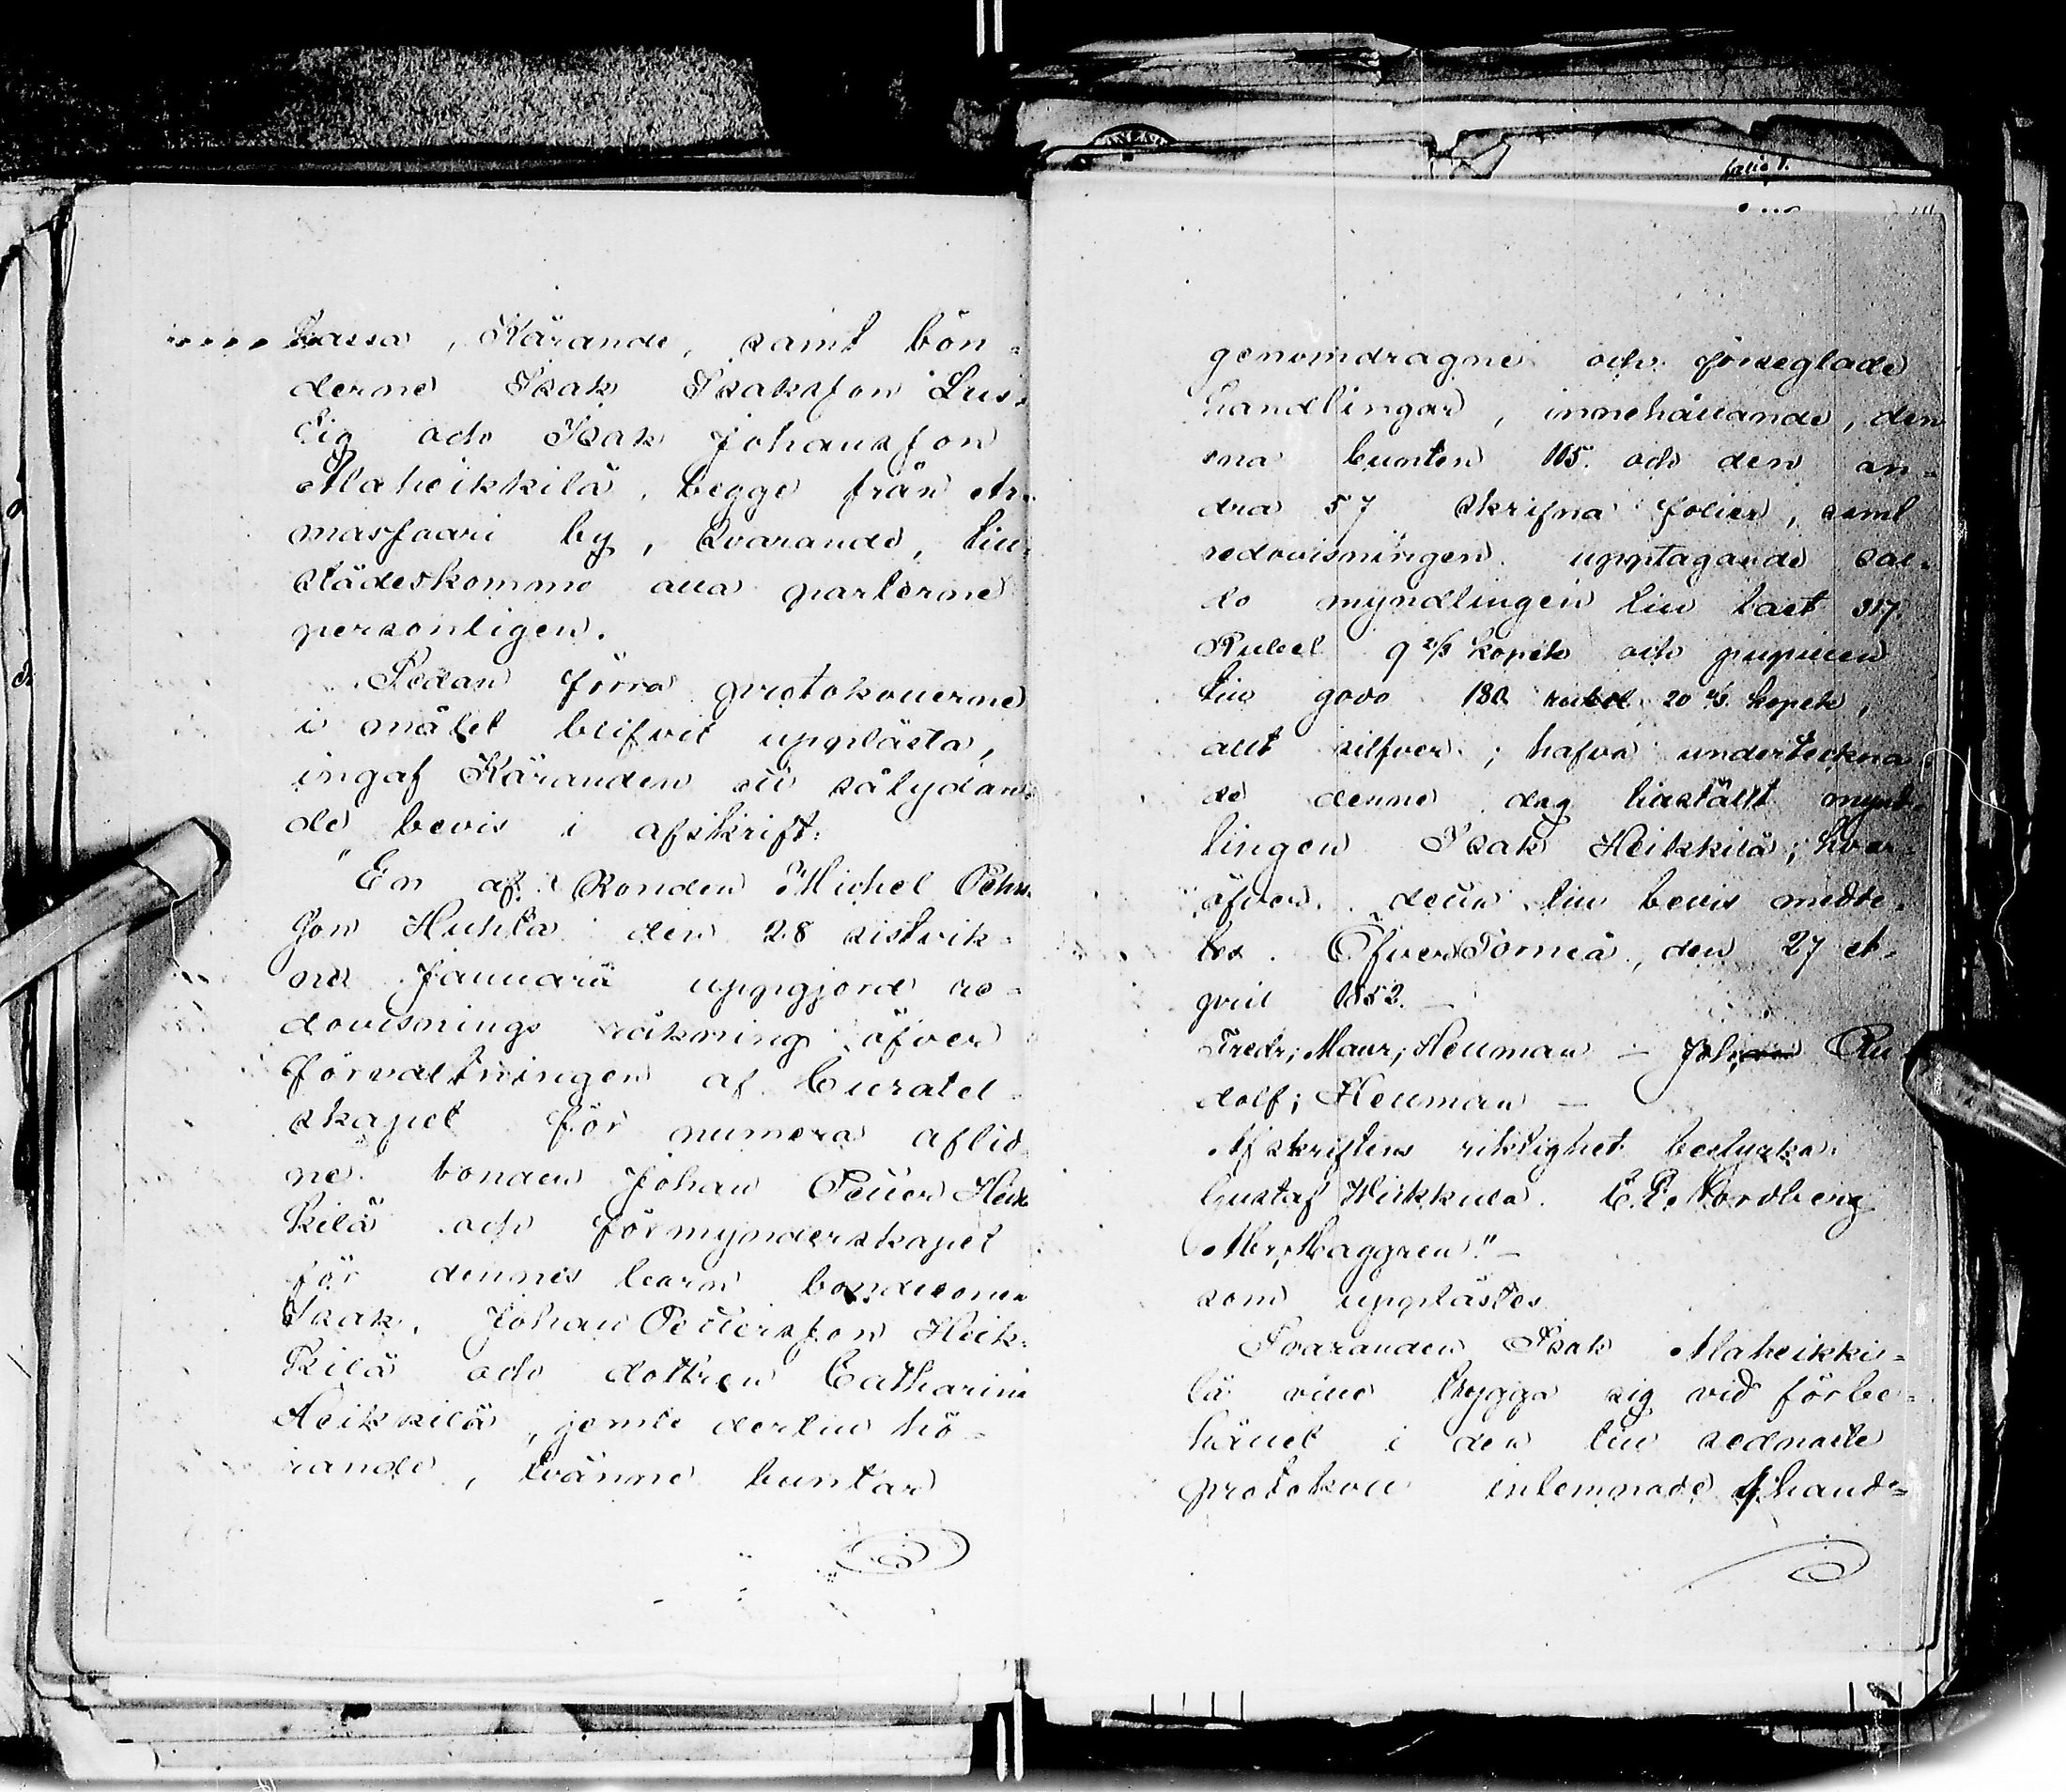 kassa, Kärande, samt bön-
derne Isak Isaksson Lus-
tig och Isak Johansson
Alaheikkilä, begge från Ar-
massaari by, Svarande, till-
städeskomme alla parterne
personligen.
Sedan förra protokollerne
i målet blifvit upplästa,
ingaf Käranden ett sålydan-
de bevis i afskrift:
"En af Bonden Michel Pehrs-
son Huhta den 28 sistvik-
ne Januarii uppgjord re-
dovisnings räkning öfver
förvaltningen af Curatel-
skapet för numera aflid-
ne bonden Johan Petter Heik-
kilä och förmynderskapet
för dennes barn bondesonen
Isak Johan Pettersson Heik-
kilä och dottren Catharina
Heikkilä, jemte dertill hö-
rande, tvänne buntar
folio 1.
genomdragne och förseglade
handlingar, innehållande, den
ena bunten 115 och den an-
dra 57 skrifna folier, samt
redovisningen upptagande sal-
do myndlingen till last 317
Rubel 9 2/3 kopek och pupillen
till godo 180 rubel 20 2/3 kopek,
allt silfver; hafva underteckna-
de denne dag tillställt mynd-
lingen Isak Heikkilä; hvar-
öfver detta till bevis medde-
les. ÖfverTorneå, den 27 A-
pril 1852.—
Fredr; Maur; Heuman — Joh: Ru-
dolf; Heuman —
Afskriftens riktighet bestyrka:
Gustaf Heikkilä. C. P. Nordberg
Abr; Haggren."—
som upplästes.
Svaranden Isak Alaheikki-
lä ville trygga sig vid förbe-
hållet i den till sednaste
protokoll inlemnade hand-